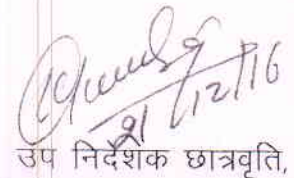 21/12/16
उप निदेशक छात्रवृति,